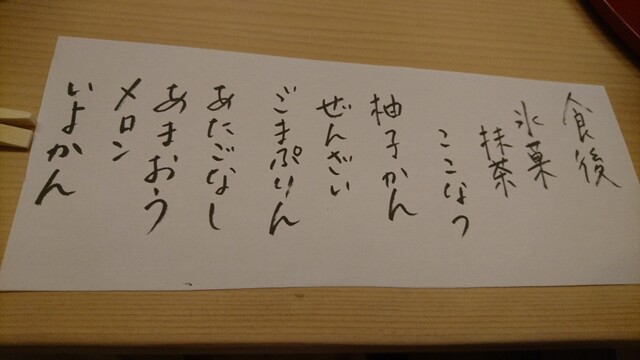 食後
氷菓
抹茶
ここなつ
柚子かん
ぜんざい
ごまぷりん
あたごなし
あまおう
メロン
いよかん